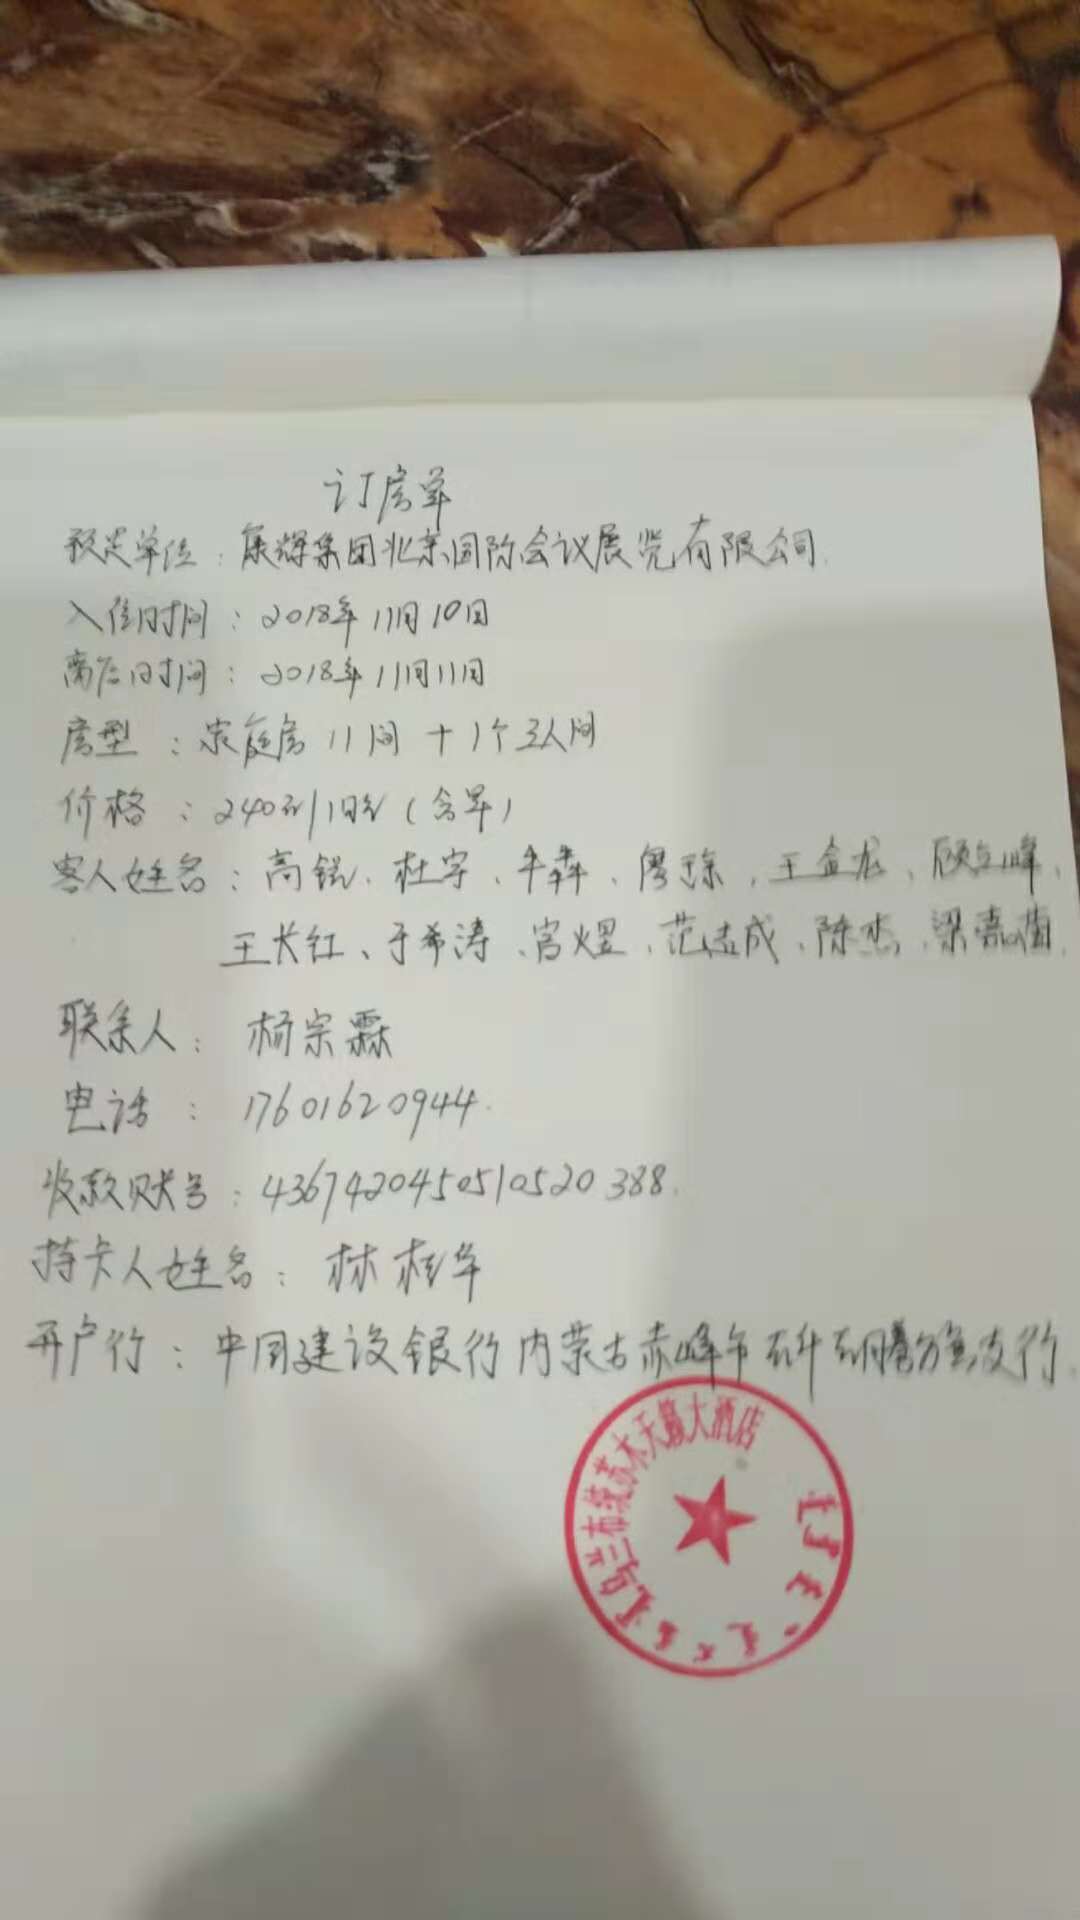 订房单
预定单位：康辉集团北京国际会议展览有限公司.
入住时间：2018年11月10日
离店时间：2018年11月11日
房型：家庭房11间+1个三人间
价格：240元/间 (含早)
客人姓名：高锐、杜宇、牛犇、廖琼、王金龙、顾立峰、
王长红、于希涛、宫煜、范志成、陈杰、梁嘉茵.
联系人：杨宗霖
电话：17601620944.
收款账号：4367420450510520388.
持卡人姓名：林桂华
开户行：中国建设银行内蒙古赤峰市支行.
乌兰布统苏木天籁大酒店